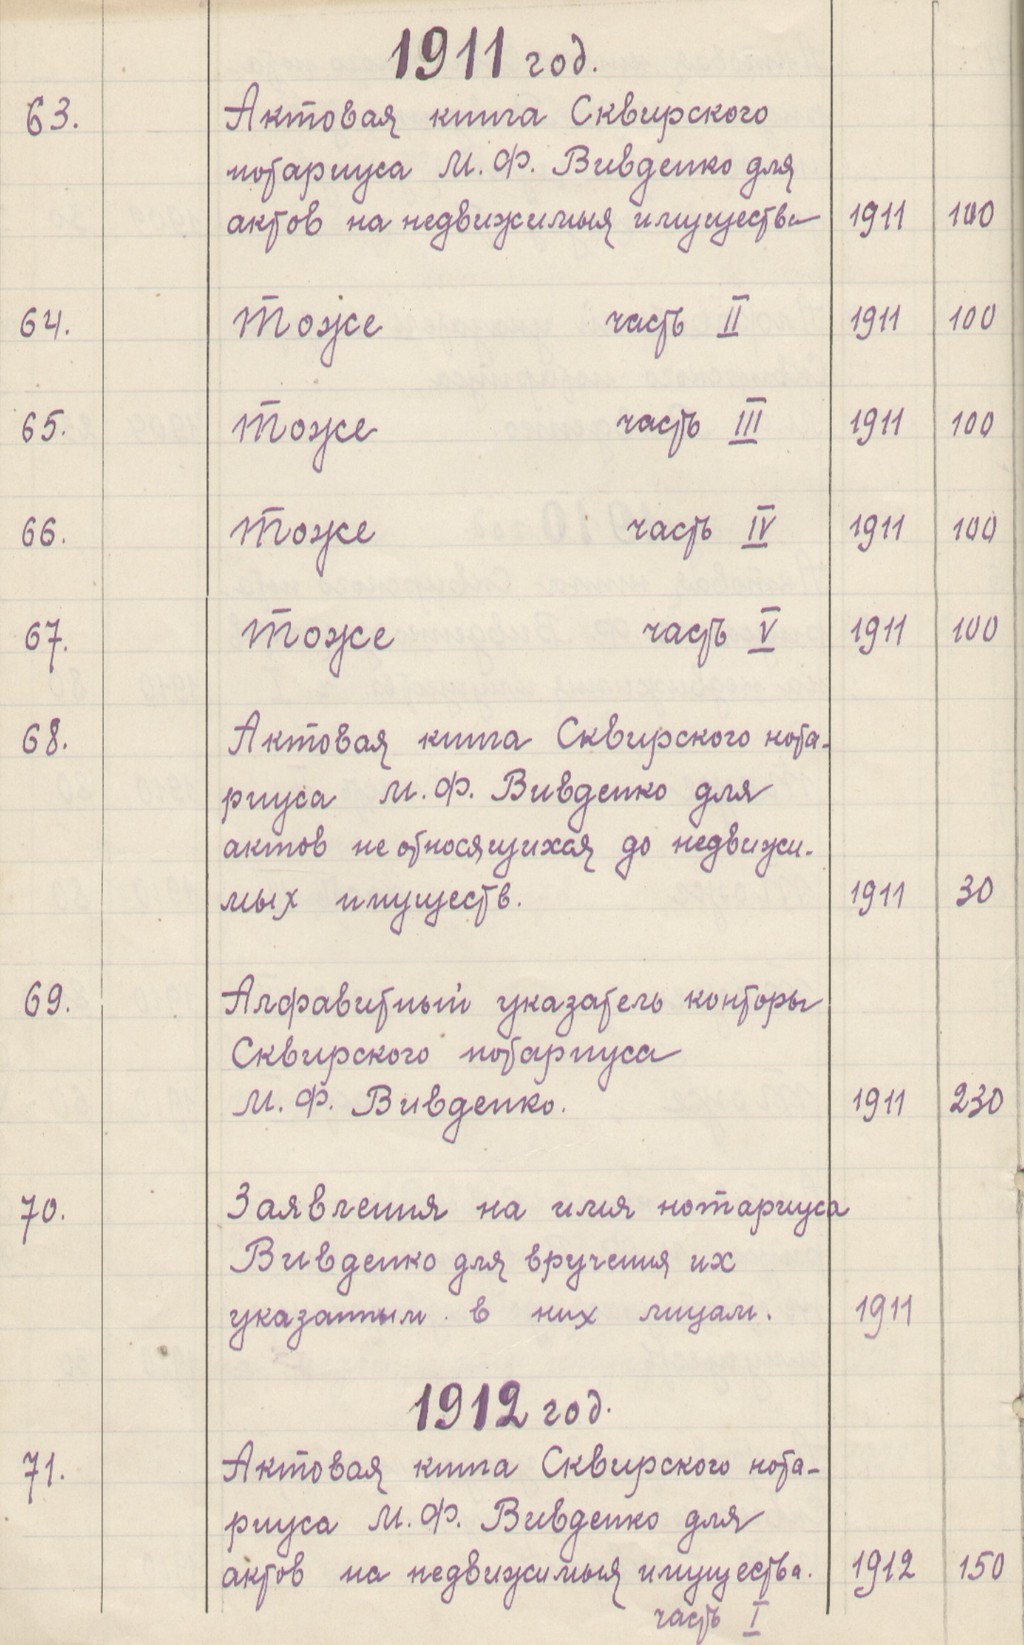 1911 год.
63. Актовая книга Сквирского
нотариуса М. Ф. Вивденко для
актов на недвижимыя имущества 1911 100
64. Тоже часть II 1911 100
65. Тоже часть III 1911 100
66. Тоже часть IV 1911 100
67. Тоже часть V 1911 100
68. Актовая книга Сквирского нота-
риуса М. Ф. Вивденко для
актов не относящихся до недвижи-
мых имуществ. 1911 30
69. Алфавитный указатель конторы
Сквирского нотариуса
М. Ф. Вивденко. 1911 230
70. Заявления на имя нотариуса
Вивденко для вручения их
указанным в них лицам. 1911
1912 год.
71. Актовая книга Сквирского нота-
риуса М. Ф. Вивденко для
актов на недвижимыя имущества. 1912 150
часть I